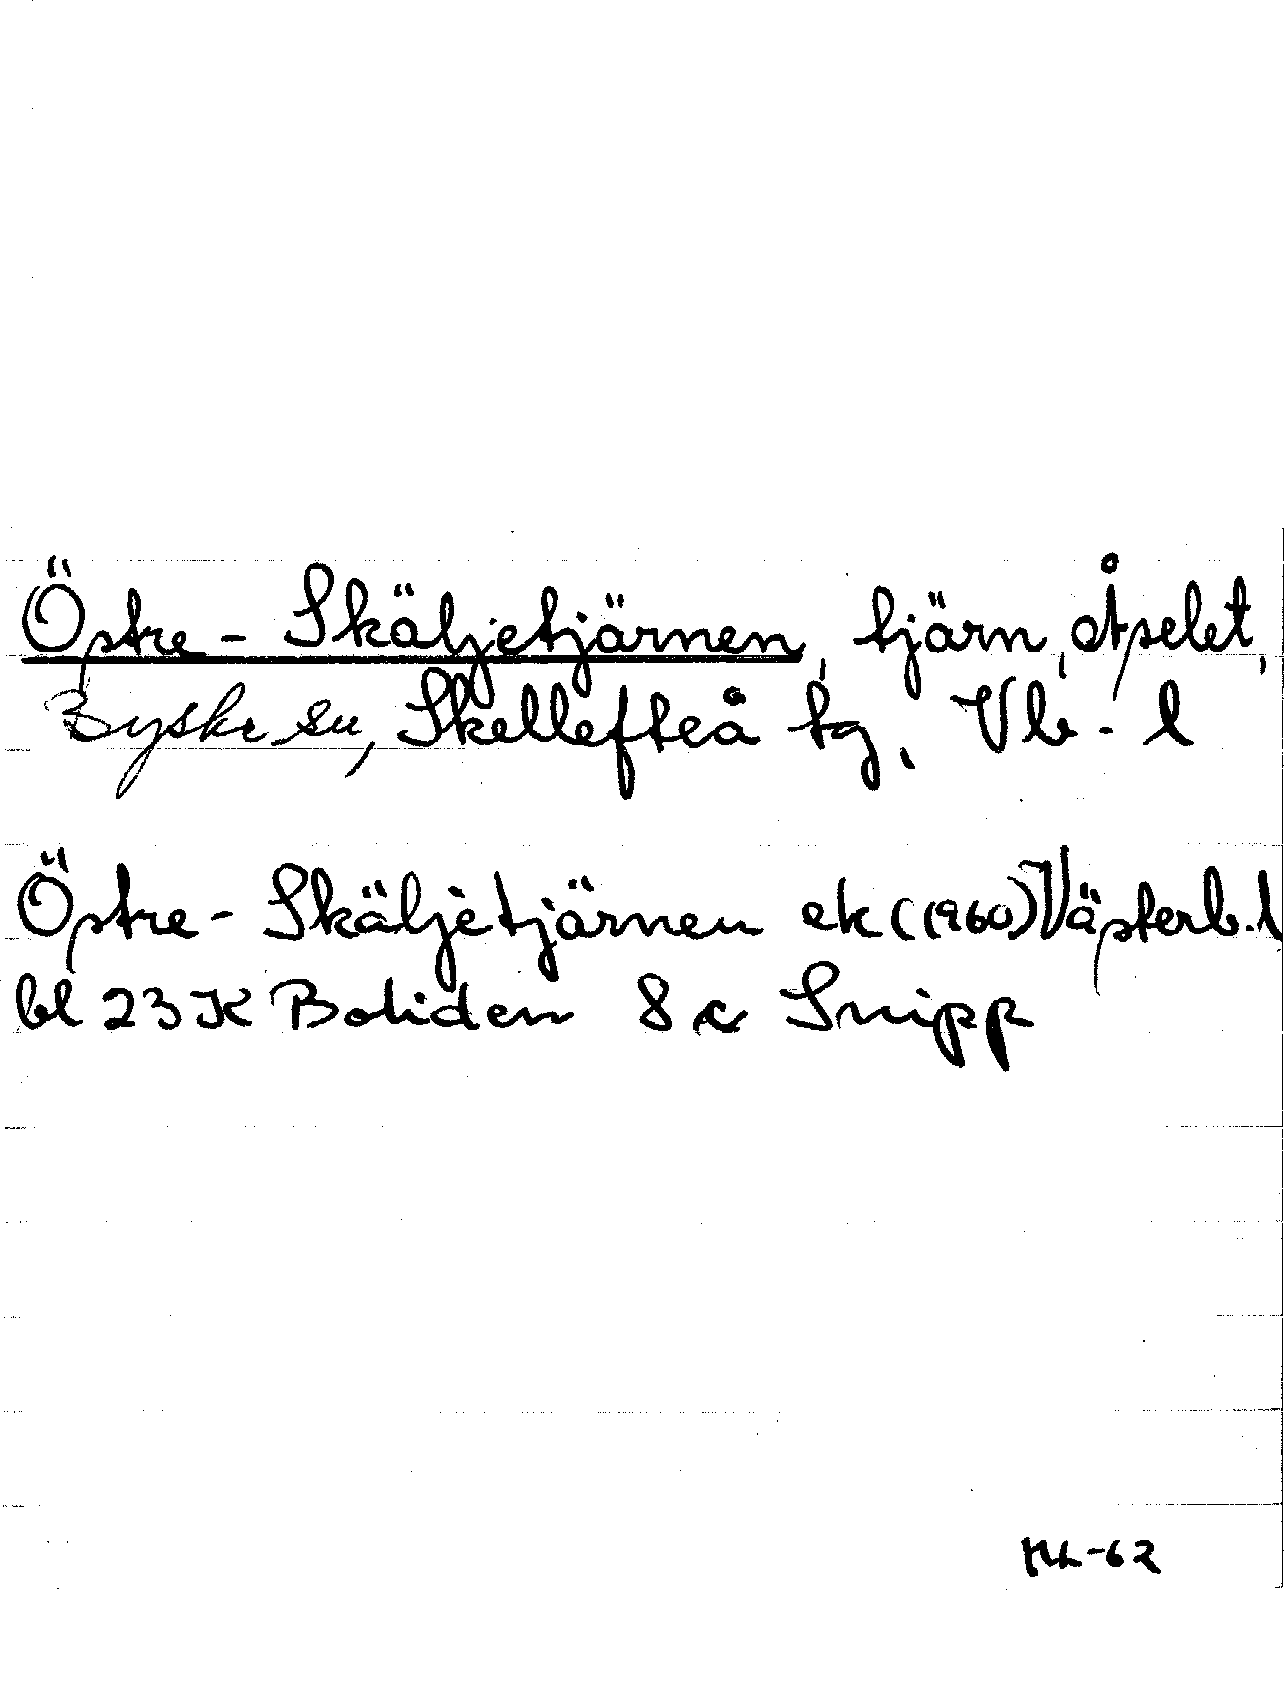 Östre-Skäljetjärnen, tjärn, Åselet,
Byske sn, Skellefteå tg, Vb-l
Östre-Skäljetjärnen ek (1960) Västerb.l
bl 23 K Boliden 8 c Snipp
-62